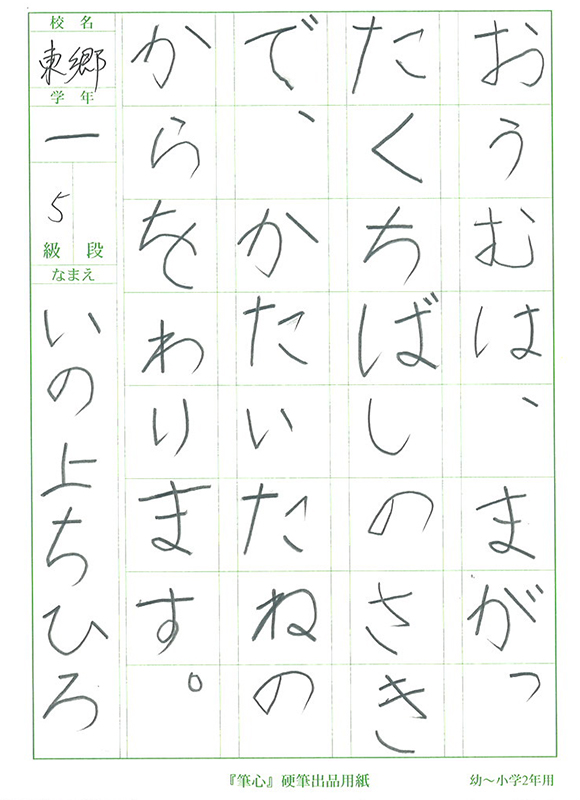 おうむは、まがっ
たくちばしのさき
で、かたいたねの
からをわります。
校名
東郷
学年
一
段
5級
なまえ
いの上ちひろ
『筆心』硬筆出品用紙
幼～小学2年用